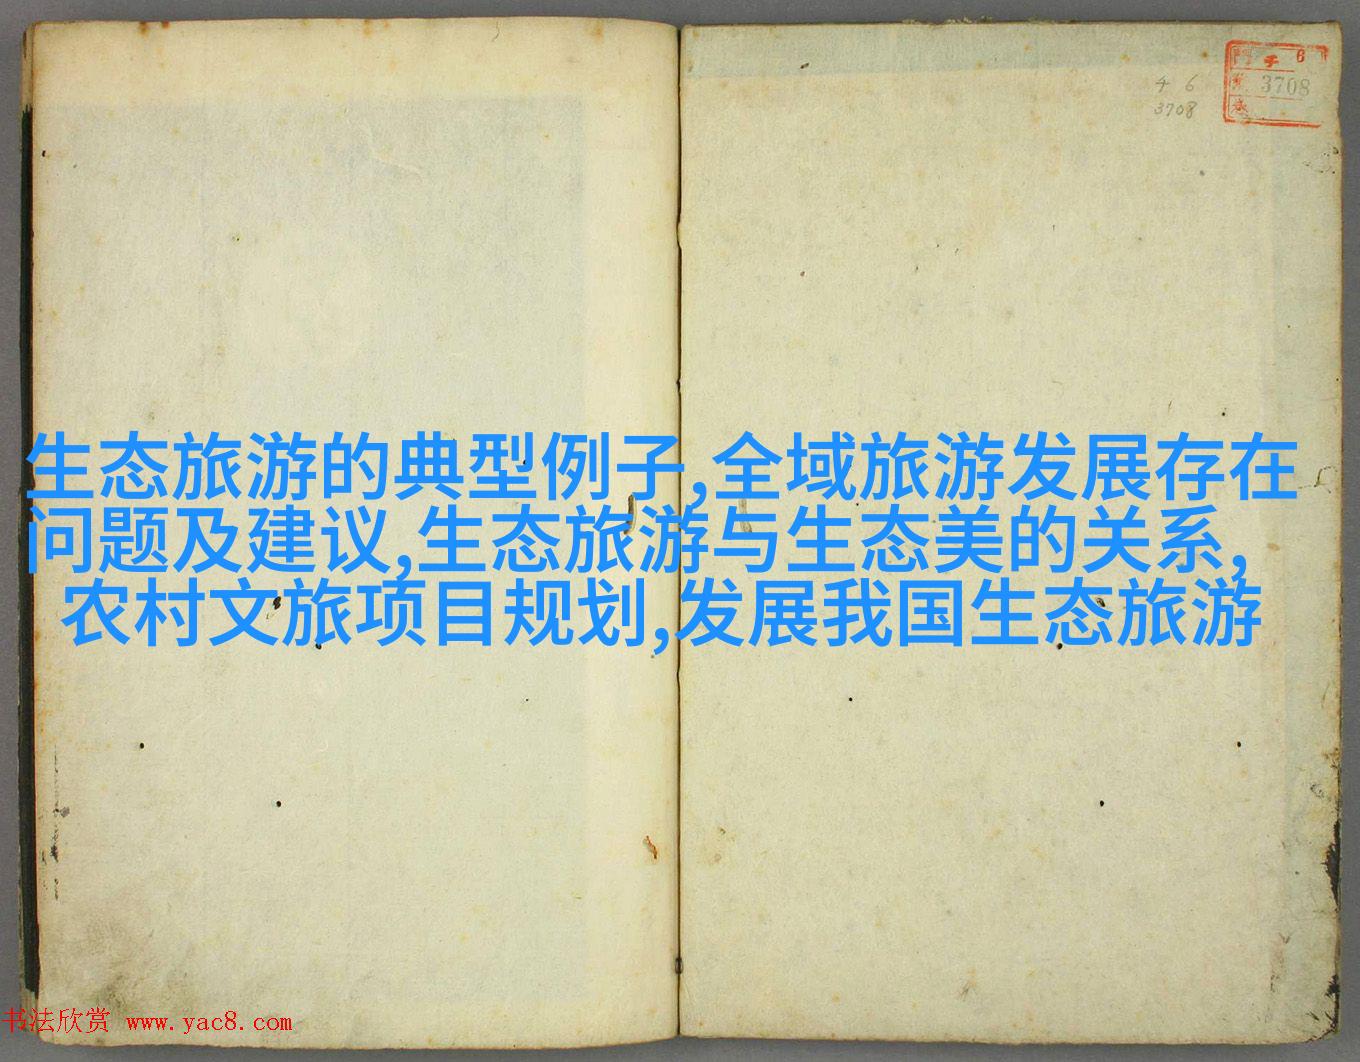 4 6
3708
6
3708
生态旅游的典型例子,全域旅游发展存在
问题及建议,生态旅游与生态美的关系,
农村文旅项目规划,发展我国生态旅游
书法欣赏 www.yac8.com